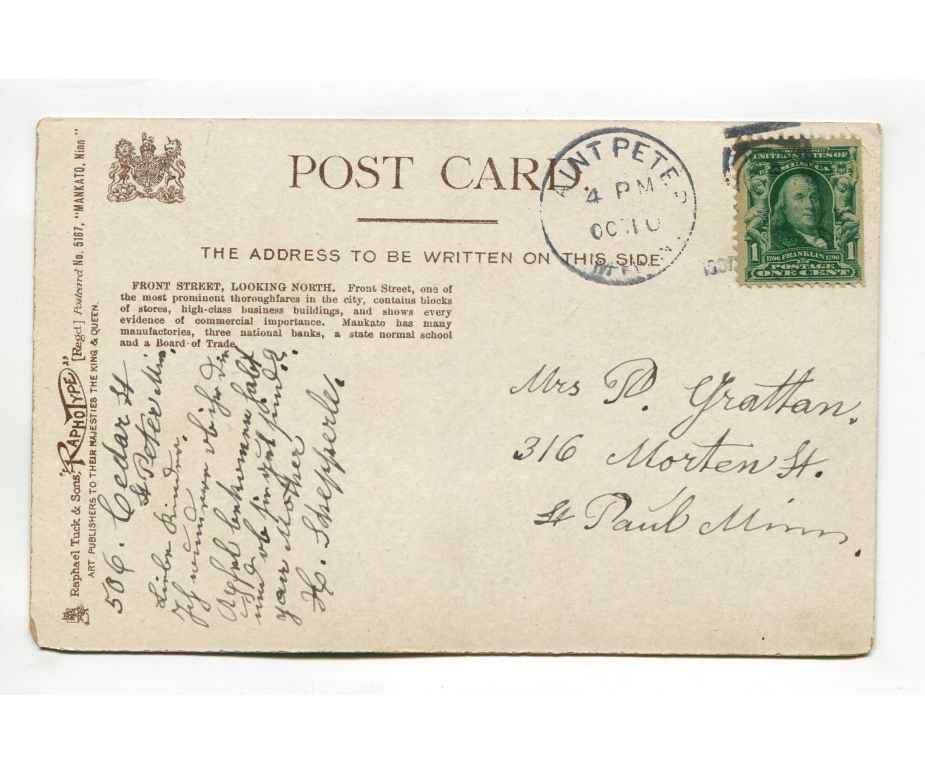 POST CARD.
THE ADDRESS TO BE WRITTEN ON THIS SIDE
FRONT STREET, LOOKING NORTH. Front Street, one of
the most prominent thoroughfares in the city, contains blocks
of stores, high-class business buildings, and shows every
evidence of commercial importance. Mankato has many
manufactories, three national banks, a state normal school
and a Board of Trade.
Raphael Tuck & Sons' "RAPHOTYPE" [Regd.] Postcard No. 5167, "MANKATO, Minn"
ART PUBLISHERS TO THEIR MAJESTIES THE KING & QUEEN.
AINT PETER
4 PM
OCT 10
UNITED STATES OF
AMERICA
1 1
1706 FRANKLIN 1790
POSTAGE
ONE CENT
506. Cedar St
St Peter Min.
Liebe Kinder.
Ich wundere ob ihr die
Apfel bekommen habt
und ob sie gut sind?
your Mother
H.
Mrs D. Grattan.
316 Morten St.
St Paul Minn.